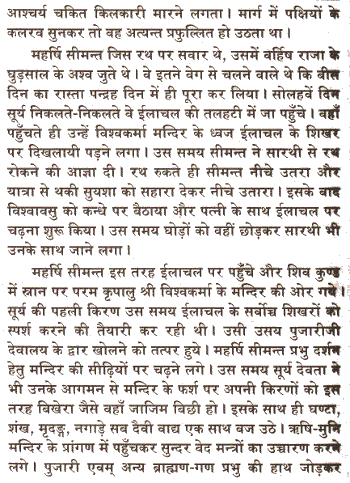 आश्चर्य चकित किलकारी मारने लगता । मार्ग में पक्षियों के
कलरव सुनकर तो वह अत्यन्त प्रफुल्लित हो उठता था ।
महर्षि सीमन्त जिस रथ पर सवार थे, उसमें वर्हिष राजा के
घुड़साल के अश्व जुते थे । वे इतने वेग से चलने वाले थे कि बीस
दिन का रास्ता पन्द्रह दिन में ही पूरा कर लिया । सोलहवें दिन
सूर्य निकलते-निकलते वे ईलाचल की तलहटी में जा पहुँचे । वहाँ
पहुँचते ही उन्हें विश्वकर्मा मन्दिर के ध्वज ईलाचल के शिखर
पर दिखलायी पड़ने लगा । उस समय सीमन्त ने सारथी से रथ
रोकने की आज्ञा दी । रथ रुकते ही सीमन्त नीचे उतरा और
यात्रा से थकी सुयशा को सहारा देकर नीचे उतारा । इसके बाद
विश्वावसु को कन्धे पर बैठाया और पत्नी के साथ ईलाचल पर
चढ़ना शुरू किया । उस समय घोड़ों को वहीं छोड़कर सारथी भी
उनके साथ जाने लगा ।
महर्षि सीमन्त इस तरह ईलाचल पर पहुँचे और शिव कुण्ड
में स्नान पर परम कृपालु श्री विश्वकर्मा के मन्दिर की ओर गये
सूर्य की पहली किरण उस समय ईलाचल के सर्वोच्च शिखरों को
स्पर्श करने की तैयारी कर रही थी । उसी उसय पुजारीजी
देवालय के द्वार खोलने को तत्पर हुये । महर्षि सीमन्त प्रभु दर्शन
हेतु मन्दिर की सीढ़ियों पर चढ़ने लगे । उस समय सूर्य देवता ने
भी उनके आगमन से मन्दिर के फर्श पर अपनी किरणों को इस
तरह विखेरा जैसे वहाँ जाजिम विछी हो । इसके साथ ही घण्टा,
शंख, मृदङ्ग, नगाड़े सब दैवी वाद्य एक साथ बज उठे । ऋषि-मुनि
मन्दिर के प्रांगण में पहुँचकर सुन्दर वेद मन्त्रों का उच्चारण करने
लगे । पुजारी एवम् अन्य ब्राह्मण-गण प्रभु की हाथ जोड़कर